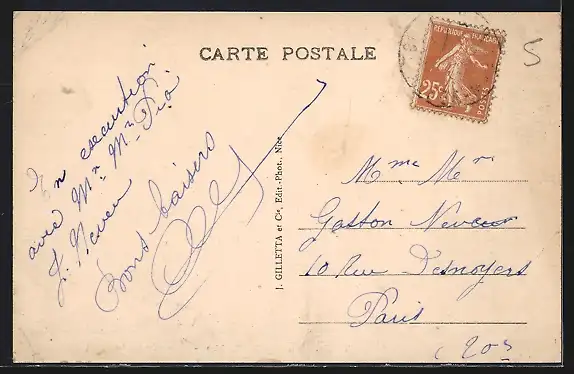 CARTE POSTALE
REPUBLIQUE FRANÇAISE
25c
POSTES
5
En excurtion
avec Mr Mr Pia
J. Neveu
Bons baisers
J. GILLETTA et Cie, Edit.-Phot., Nice
Mme Mr
Gaston Neveux
10 Rue Desnoyers
Paris
(20e